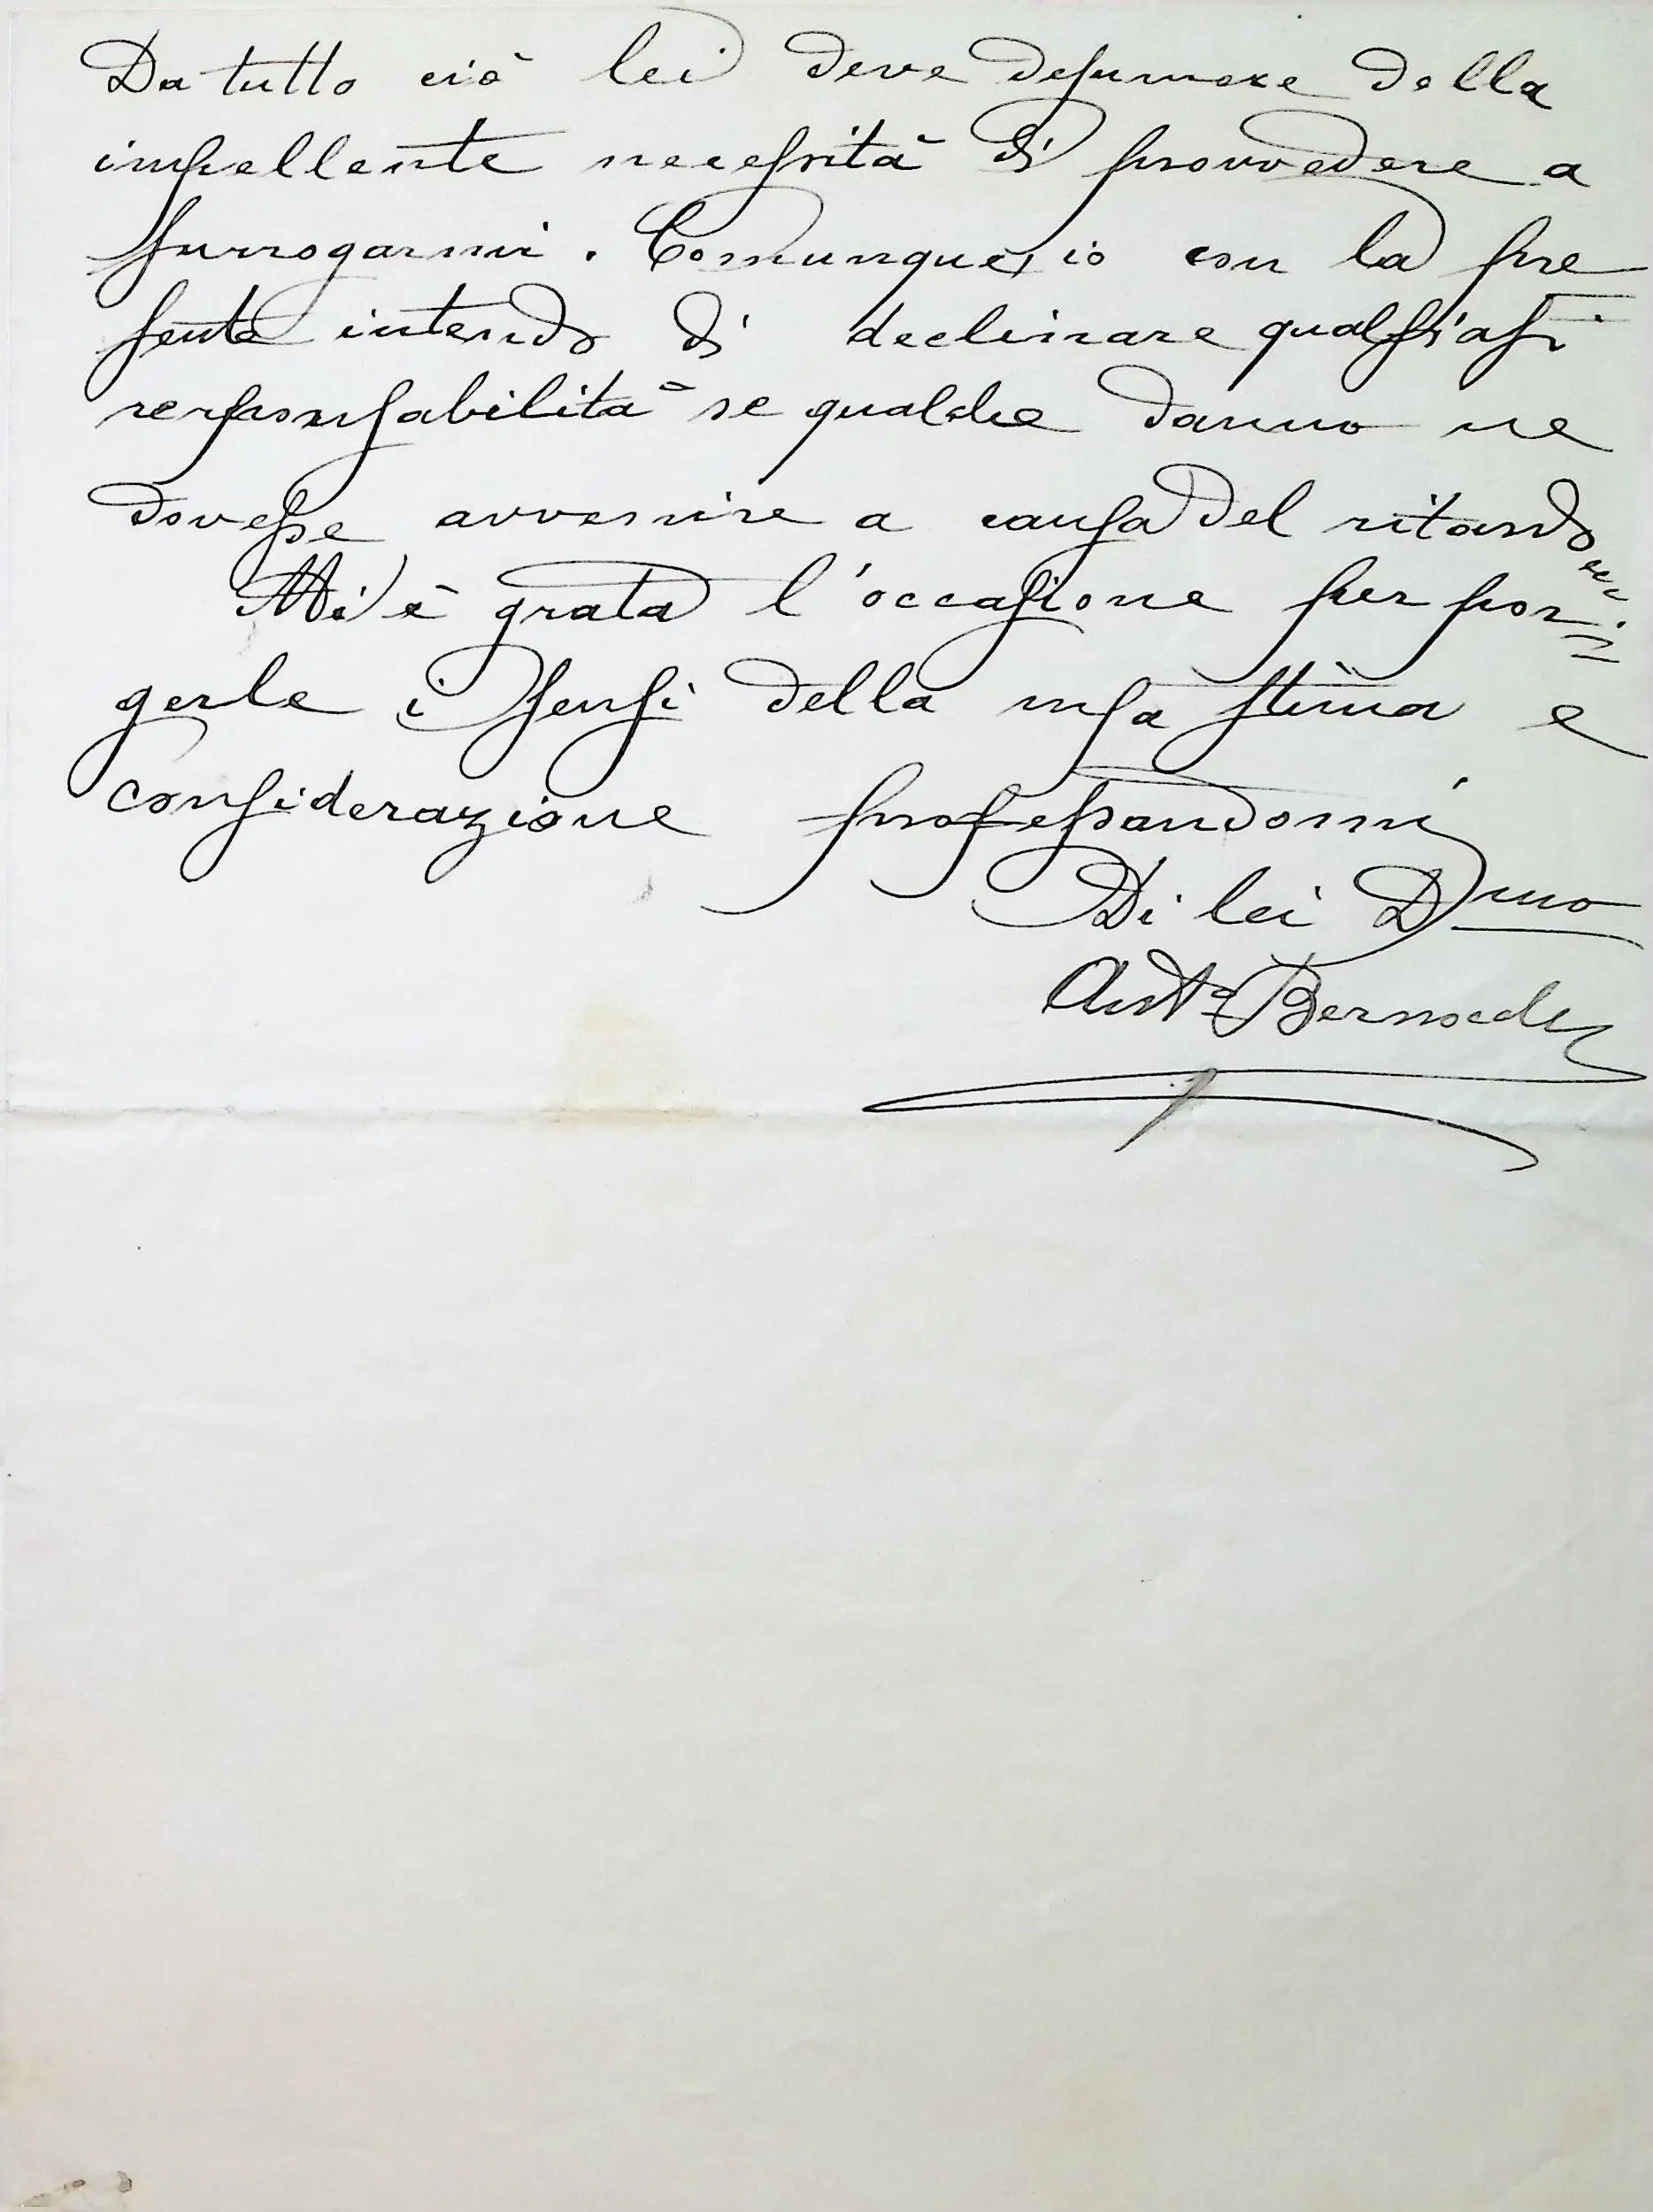 Da tutto ciò lei deve desumere della
impellente necessità di provvedere a
surrogarmi. Comunque, io con la pre
sente intendo di declinare qualsiasi
responsabilità se qualche danno ne
dovesse avvenire a causa del ritardo
Mi è grata l'occasione per por=
gerle i sensi della mia stima e
considerazione professandomi
Di lei D.mo
Ant.o